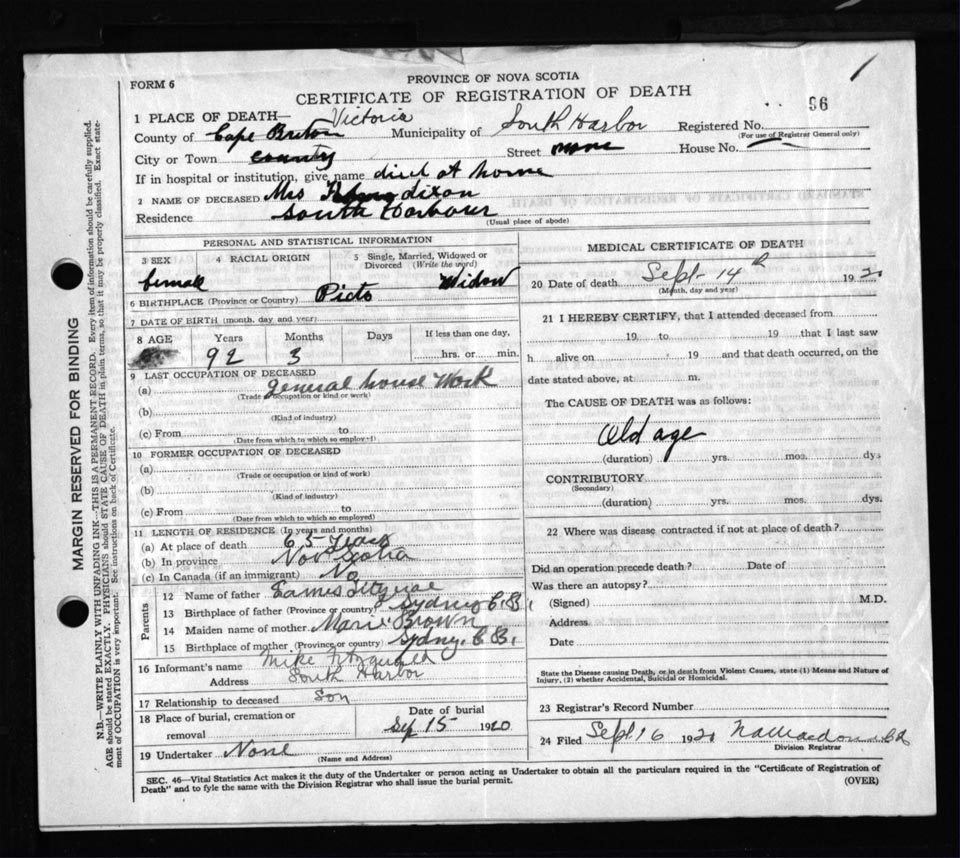 PROVINCE OF NOVA SCOTIA
FORM 6
CERTIFICATE OF REGISTRATION OF DEATH
96
1 PLACE OF DEATH— Victoria
County of Cape Breton Municipality of South Harbor Registered No.
(For use of Registrar General only)
City or Town county Street none House No.
If in hospital or institution, give name died at home
2 NAME OF DECEASED Mrs dixon
Residence South Harbour
(Usual place of abode)
PERSONAL AND STATISTICAL INFORMATION
3 SEX 4 RACIAL ORIGIN 5 Single, Married, Widowed or Divorced (Write the word)
female Widow
6 BIRTHPLACE (Province or County) Picto
7 DATE OF BIRTH (month, day and year)
8 AGE Years Months Days If less than one day,
92 3 hrs. or min.
9 LAST OCCUPATION OF DECEASED
(a) general house Work
(Trade occupation or kind or work)
(b)
(Kind of industry)
(c) From to
(Date from which to which so employed)
10 FORMER OCCUPATION OF DECEASED
(a)
(Trade or occupation or kind of work)
(b)
(Kind of industry)
(c) From to
(Date from which to which so employed)
11 LENGTH OF RESIDENCE (In years and months)
(a) At place of death 65 years
(b) In province Nov Scotia
(c) In Canada (if an immigrant) No
Parents
12 Name of father
13 Birthplace of father (Province or country) Sydney C. B.
14 Maiden name of mother Marie Brown
15 Birthplace of mother (Province or country) Sydney, C B.
16 Informant's name Mike
Address South Harbor
17 Relationship to deceased Son
18 Place of burial, cremation or removal Date of burial
Sep 15 1920
19 Undertaker None
(Name and Address)
MEDICAL CERTIFICATE OF DEATH
20 Date of death Sept- 14th 192
(Month, day and year)
21 I HEREBY CERTIFY, that I attended deceased from
19 to 19 that I last saw
h alive on 19 and that death occurred, on the
date stated above, at m.
The CAUSE OF DEATH was as follows:
Old age
(duration) yrs. mos. dys
CONTRIBUTORY
(Secondary)
(duration) yrs. mos. dys.
22 Where was disease contracted if not at place of death?
Did an operation precede death? Date of
Was there an autopsy?
(Signed) M.D.
Address
Date
State the Disease causing Death, or in death from Violent Causes, state (1) Means and Nature of
Injury, (2) whether Accidental, Suicidal or Homicidal.
23 Registrar's Record Number
24 Filed Sept. 16 192
Division Registrar
SEC. 46—Vital Statistics Act makes it the duty of the Undertaker or person acting as Undertaker to obtain all the particulars required in the "Certificate of Registration of
Death" and to fyle the same with the Division Registrar who shall issue the burial permit. (OVER)
MARGIN RESERVED FOR BINDING
N.B.—WRITE PLAINLY WITH UNFADING INK—THIS IS A PERMANENT RECORD. Every item of information should be carefully supplied.
AGE should be stated EXACTLY. PHYSICIANS should STATE CAUSE OF DEATH in plain terms, so that it may be properly classified. Exact state-
ment of OCCUPATION is very important. See instructions on back of Certificate.